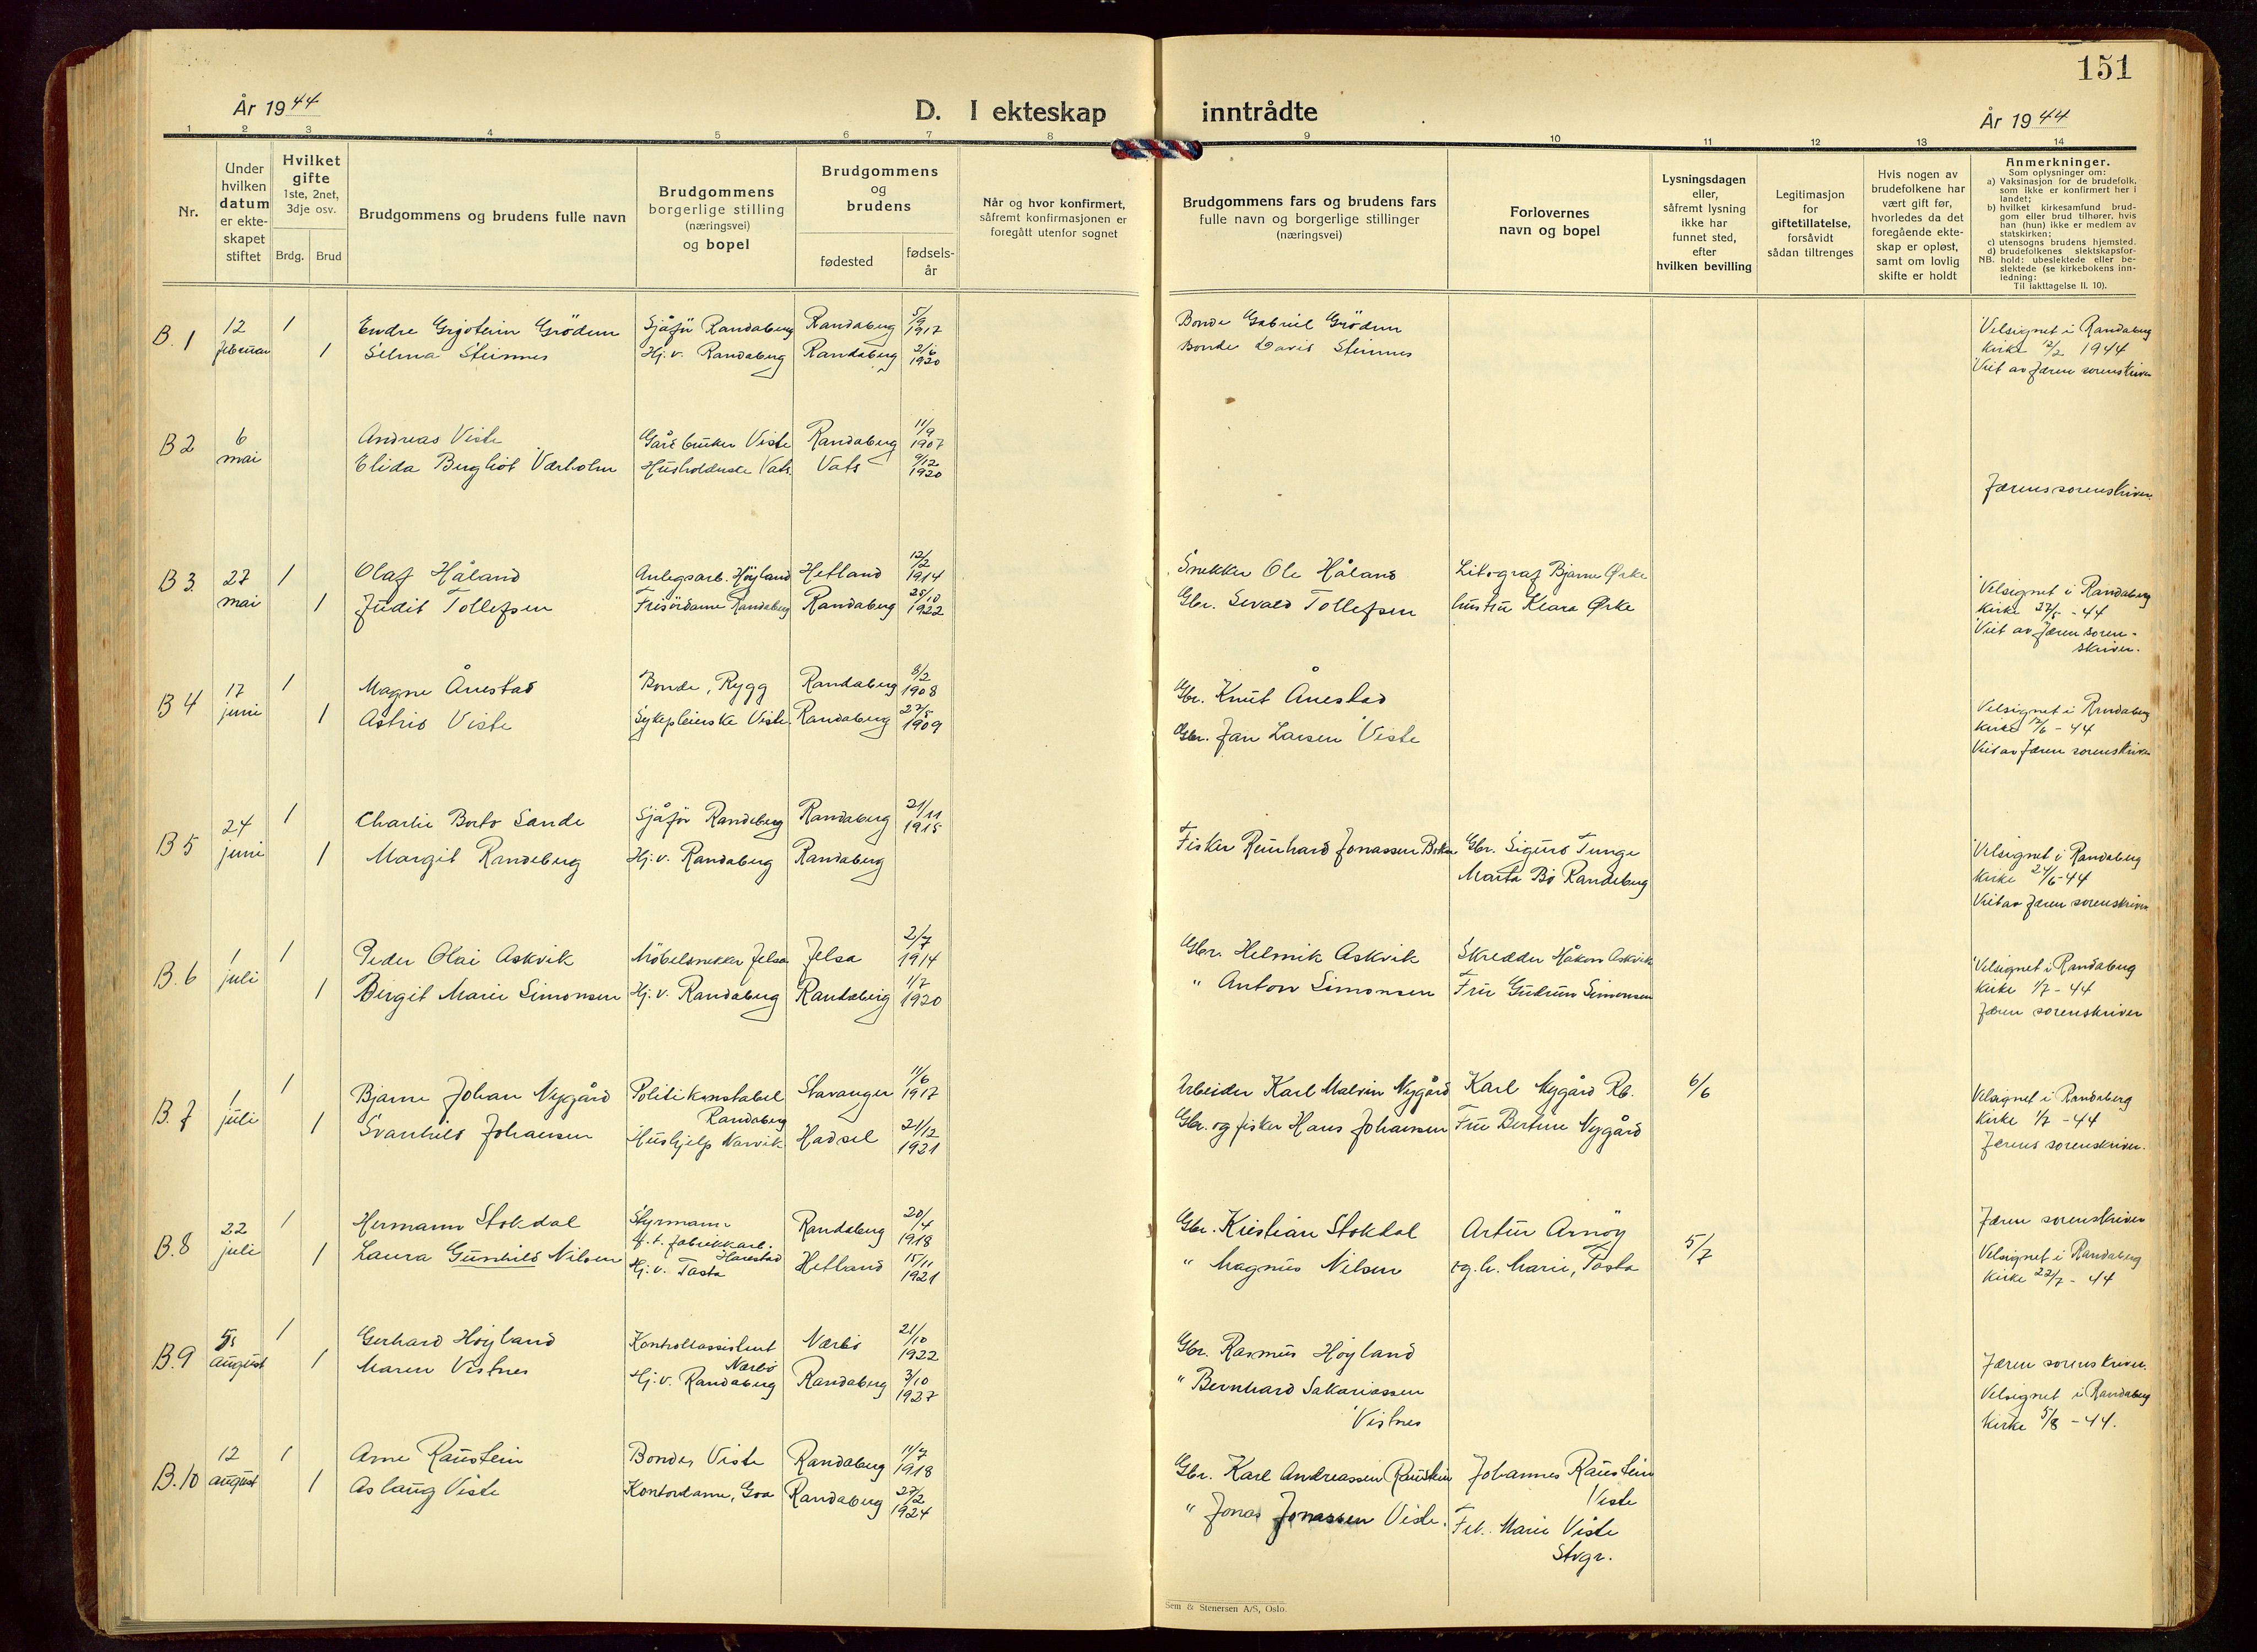 151
År 1944
D. I ekteskap inntrådte
År 1944
1 2 3 4 5 6 7 8 9 10 11 12 13 14
Nr.
Under
hvilken
datum
er ekte-
skapet
stiftet
Hvilket
gifte
1ste, 2net,
3dje osv.
Brdg. Brud
Brudgommens og brudens fulle navn
Brudgommens
borgerlige stilling
(næringsvei)
og bopel
Brudgommens
og
brudens
fødested
fødsels-
år
Når og hvor konfirmert,
såfremt konfirmasjonen er
foregått utenfor sognet
Brudgommens fars og brudens fars
fulle navn og borgerlige stillinger
(næringsvei)
Forlovernes
navn og bopel
Lysningsdagen
eller,
såfremt lysning
ikke har
funnet sted,
efter
hvilken bevilling
Legitimasjon
for
giftetillatelse,
forsåvidt
sådan tiltrenges
Hvis nogen av
brudefolkene har
vært gift før,
hvorledes da det
foregående ekte-
skap er opløst,
samt om lovlig
skifte er holdt
Anmerkninger.
Som oplysninger om:
a) Vaksinasjon for de brudefolk,
som ikke er konfirmert her i
landet;
b) hvilket kirkesamfund brud-
gom eller brud tilhører, hvis
han (hun) ikke er medlem av
statskirken;
c) utensogns brudens hjemsted.
d) brudefolkenes slektskapsfor-
NB. hold: ubeslektede eller be-
slektede (se kirkebokens inn-
ledning:
Til iakttagelse II. 10).
B. 1 12 februar 1 Endre Grjotheim Grödem Sjåfør Randaberg Randaberg 5/9 1917 Bonde Gabriel Grödem
1 Selma Steinnes Hj. v. Randaberg Randaberg 2/6 1920 Bonde David Steinnes
Velsignet i Randaberg
kirke 12/2 1944
Viet av Jæren sorenskriver
B 2 6 mai Andreas Viste Gårdbruker Viste Randaberg 11/9 1907
Elida Bergliot Værholm Husholderske Vats Vats 9/12 1920
Jærens sorenskriver.
B 3. 27 mai 1 Olaf Håland Anlegsarb. Höyland Hetland 12/2 1914 Snekker Ole Håland Litograf Bjarne Ørke
1 Judit Tollefsen Frisördame Randaberg Randaberg 25/10 1922 Gbr. Sevald Tollefsen hustru Klara Ørke
Velsignet i Randaberg
kirke 27/5 - 44
Viet av Jæren soren-
skriver.
B 4 17 juni 1 Magne Ånestad Bonde, Rygg Randaberg 8/2 1908 Gbr. Knut Ånestad
1 Astrid Viste Sykepleierske Viste Randaberg 27/5 1909 Gbr. Jan Larsen Viste
Velsignet i Randaberg
kirke 17/6 - 44
Viet av Jæren sorenskriver
B 5 24 juni 1 Charlie Sande Sjåför Randaberg Randaberg 21/11 1915 Fisker Reinhard Jonassen Gbr. Sigurd Tunge
1 Margit Randeberg Hj. v. Randaberg Randaberg Marta Bö Randeberg
Velsignet i Randaberg
kirke 24/6 - 44
Viet av Jæren sorenskriver
B. 6 1 juli 1 Peder Olai Askvik Möbelsnekker Jelsa Jelsa 2/7 1914 Gbr. Helmik Askvik Skredder Håkon Askvik
1 Bergit Marie Simonsen Hj. v. Randaberg Randaberg 11/7 1920 " Anton Simonsen Fru Gudrun Simonsen
Velsignet i Randaberg
kirke 1/7 - 44
Jæren sorenskriver
B. 7 1 juli 1 Bjarne Johan Nygård Politikonstabel Randaberg Stavanger 11/6 1917 Arbeider Karl Malvin Nygård Karl Nygård Rb. 6/6
1 Svanhild Johansen Hushjelp Narvik Hadsel 21/12 1921 Gbr. og fisker Hans Johansen Fru Bertine Nygård
Velsignet i Randaberg
Kirke 1/7 - 44
Jærens sorenskriver.
B. 8 22 juli 1 Hermann Stokdal Styrmann f. t. fabrikkarb. Harestad Randaberg 20/4 1918 Gbr. Kristian Stokdal Artur Arnöy 5/7
1 Laura Gunhild Nilsen Hj. v. Tasta Hetland 15/11 1921 " Magnus Nilsen og h. Marie, Tasta
Jæren sorenskriver
Velsignet i Randaberg
kirke 22/7 - 44
B. 9 5 august 1 Gerhard Höyland Kontrollassistent Nærbö Nærbö 21/10 1922 Gbr. Rasmus Höyland
1 Maren Vistnes Hj. v. Randaberg Randaberg 3/10 1927 " Bernhard Sakariassen
Vistnes
Jæren sorenskriver.
Velsignet i Randaberg
kirke 5/8 - 44.
B. 10 12 august 1 Arne Raustein Bonde, Viste Randaberg 11/7 1918 Gbr. Karl Andreassen Raustein Johannes Raustein
Viste
1 Aslaug Viste Kontordame, Goa Randaberg 27/2 1924 " Jonas Jonassen Viste. Frk. Marie Viste
Stvgr.
Sem & Stenersen A/S, Oslo.